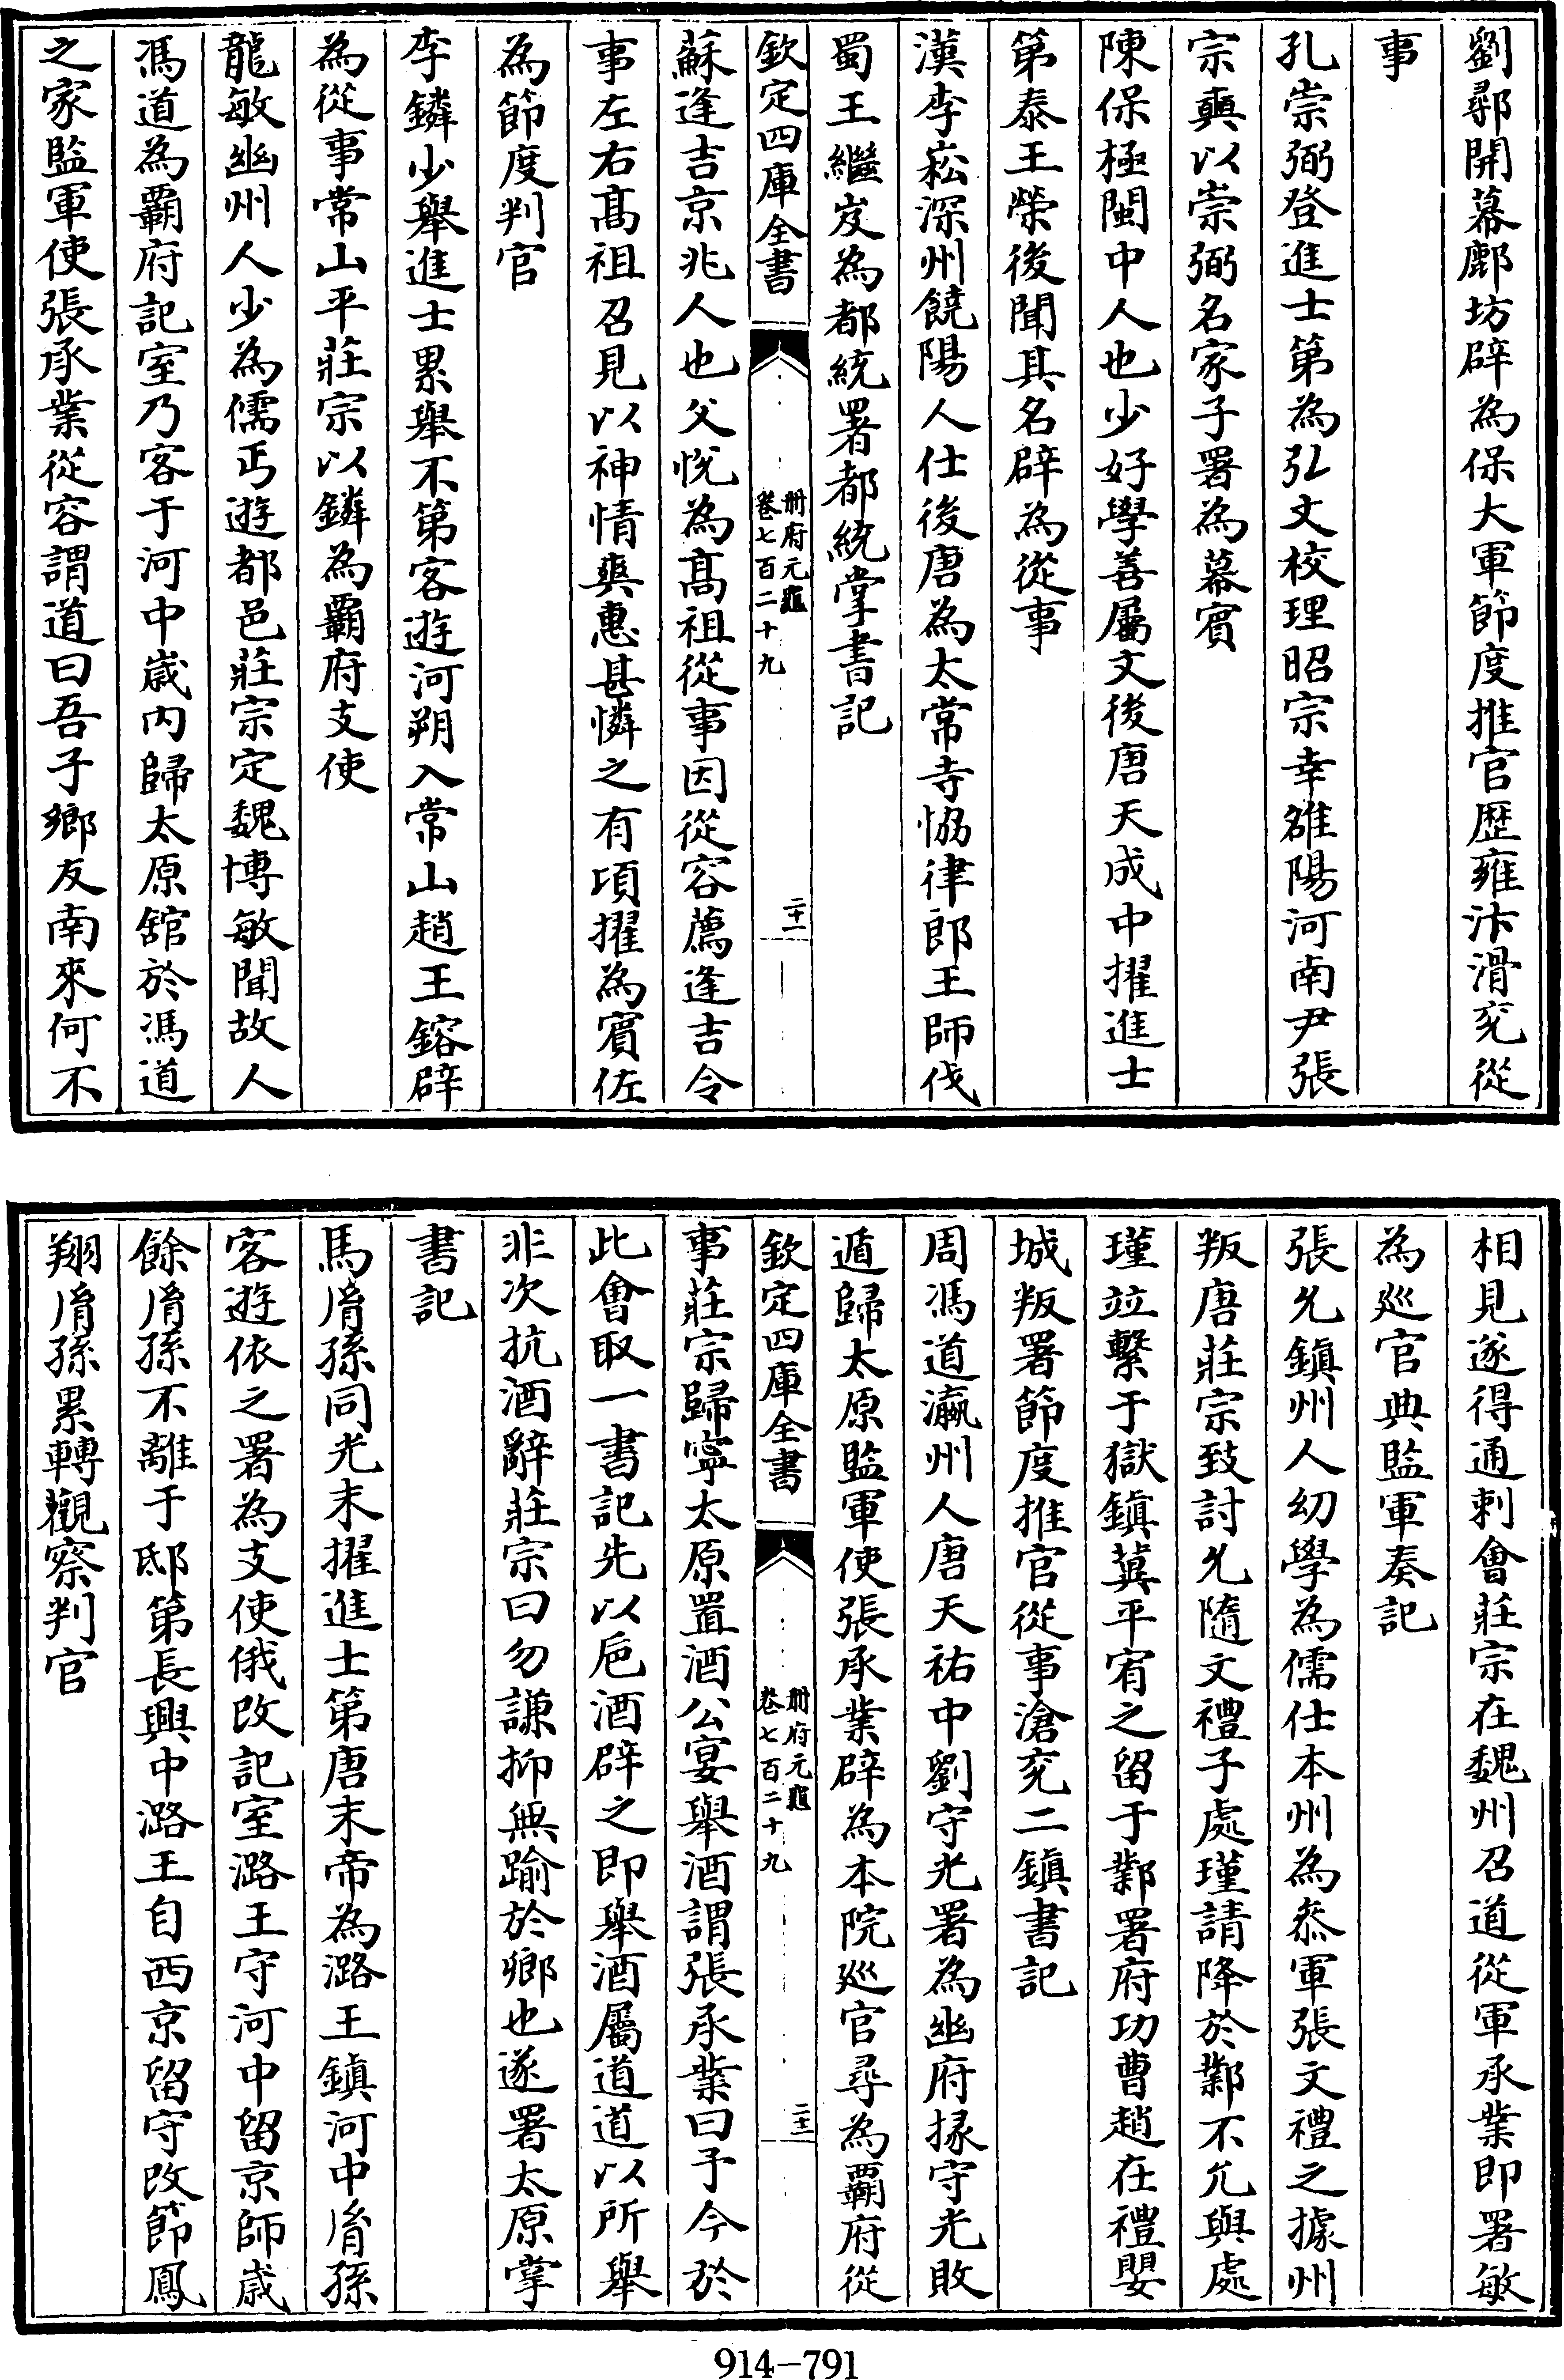 劉鄩開幕鄜坊辟為保大軍節度推官歴雍汴滑兖從
事
孔崇弼登進士第為弘文校理昭宗幸雒陽河南尹張
宗奭以崇弼名家子署為幕賓
陳保極閩中人也少好學善屬文後唐天成中擢進士
第秦王榮後聞其名辟為從事
漢李崧深州饒陽人仕後唐為太常寺恊律郎王師伐
蜀王繼岌為都統署都統掌書記
欽定四庫全書
冊府元龜
卷七百二十九
二十一
蘇逢吉京兆人也父悅為髙祖從事因從容薦逢吉令
事左右髙祖召見以神情爽惠甚憐之有頃擢為賓佐
為節度判官
李鏻少舉進士累舉不第客遊河朔入常山趙王鎔辟
為從事常山平莊宗以鏻為覇府支使
龍敏幽州人少為儒丐遊都邑莊宗定魏博敏聞故人
馮道為覇府記室乃客于河中歳內歸太原舘於馮道
之家監軍使張承業從容謂道曰吾子鄉友南來何不
相見遂得通刺會莊宗在魏州召道從軍承業即署敏
為廵官典監軍奏記
張允鎮州人幼學為儒仕本州為叅軍張文禮之據州
叛唐莊宗致討允隨文禮子處瑾請降於鄴不允與處
瑾竝繫于獄鎮冀平宥之留于鄴署府功曹趙在禮嬰
城叛署節度推官從事滄兖二鎮書記
周馮道瀛州人唐天祐中劉守光署為幽府掾守光敗
遁歸太原監軍使張承業辟為本院廵官尋為覇府從
欽定四庫全書
冊府元龜
卷七百二十九
二十二
事莊宗歸寧太原置酒公宴舉酒謂張承業曰予今於
此會取一書記先以巵酒辟之即舉酒屬道道以所舉
非次抗酒辭莊宗曰勿謙抑無踰於卿也遂署太原掌
書記
馬胤孫同光末擢進士第唐末帝為潞王鎮河中胤孫
客遊依之署為支使俄改記室潞王守河中留京師歳
餘胤孫不離于邸第長興中潞王自西京留守改節鳳
翔胤孫累轉觀察判官
914-791